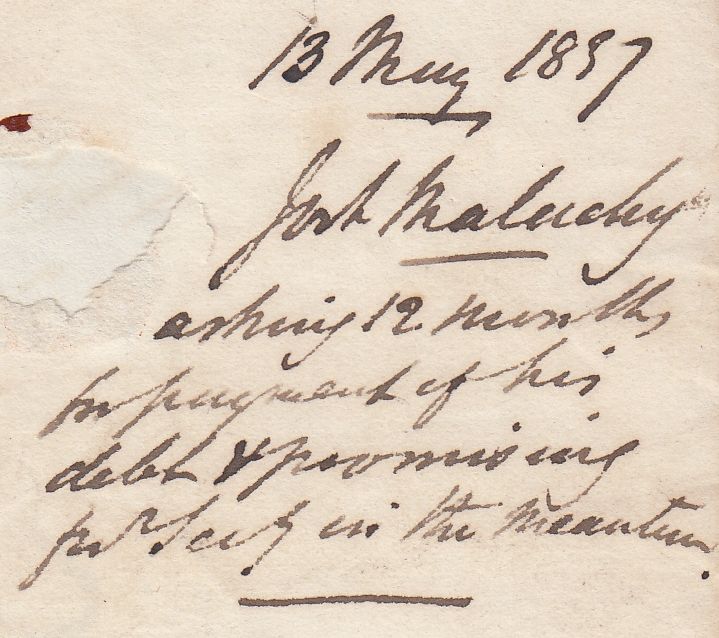 13 May 1837
Malachy
asking 12 months
for payment of his
debt & promising
in the meantime.